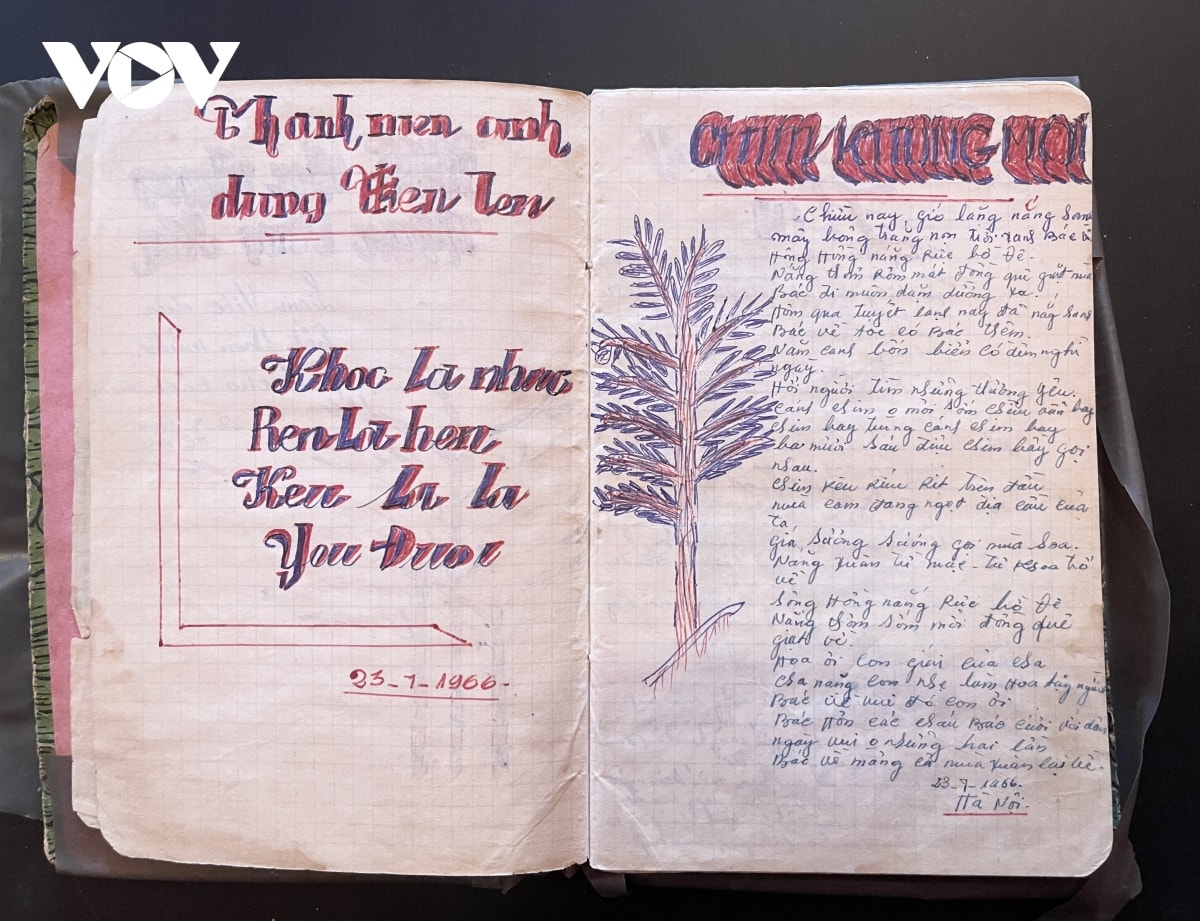 VOV
Thanh nien anh
dung Tien len
Khoc la nhuc
Ren la hen
Keu la la
You Duoi
23-7-1966-
CHIM KHONG MOI
Chiều nay gió lặng nắng
mây bỗng trắng non trời xanh Bác
Hồng nắng Rực bồ Đề.
Nắng thơm Rơm mát đồng quê gặt
Bác đi muôn dặm đường xa.
Hôm qua tuyết lạnh nay đã nắng
Bác về tóc có Bác thêm.
Năm canh bốn biển có đêm nghỉ
ngày.
Hỏi người tim những thương yêu.
cánh chim mỏi sớm chiều vẫn bay
chim bay trong cánh chim bay
ba mươi sáu đầu chim hãy gọi
nhau.
chim kêu Ríu Rít trên đầu
mùa cam đang ngọt địa cầu của
ta
Giá sương sương gọi mùa
Nắng xuân từ mạc-tư khoa trở
về
Sông Hồng nắng Rực bồ Đề
Nắng thơm sớm mời đồng quê
giặt về.
Hoa ơi con gái của cha
cha nâng con nhẹ làm Hoa
Bác về vui đó con ơi
Bác Hôn các cháu Bác cười với dân
ngày vui những hai lần
Bác về mảng cả mùa xuân lại về.
23-7-1966.
Hà Nội.